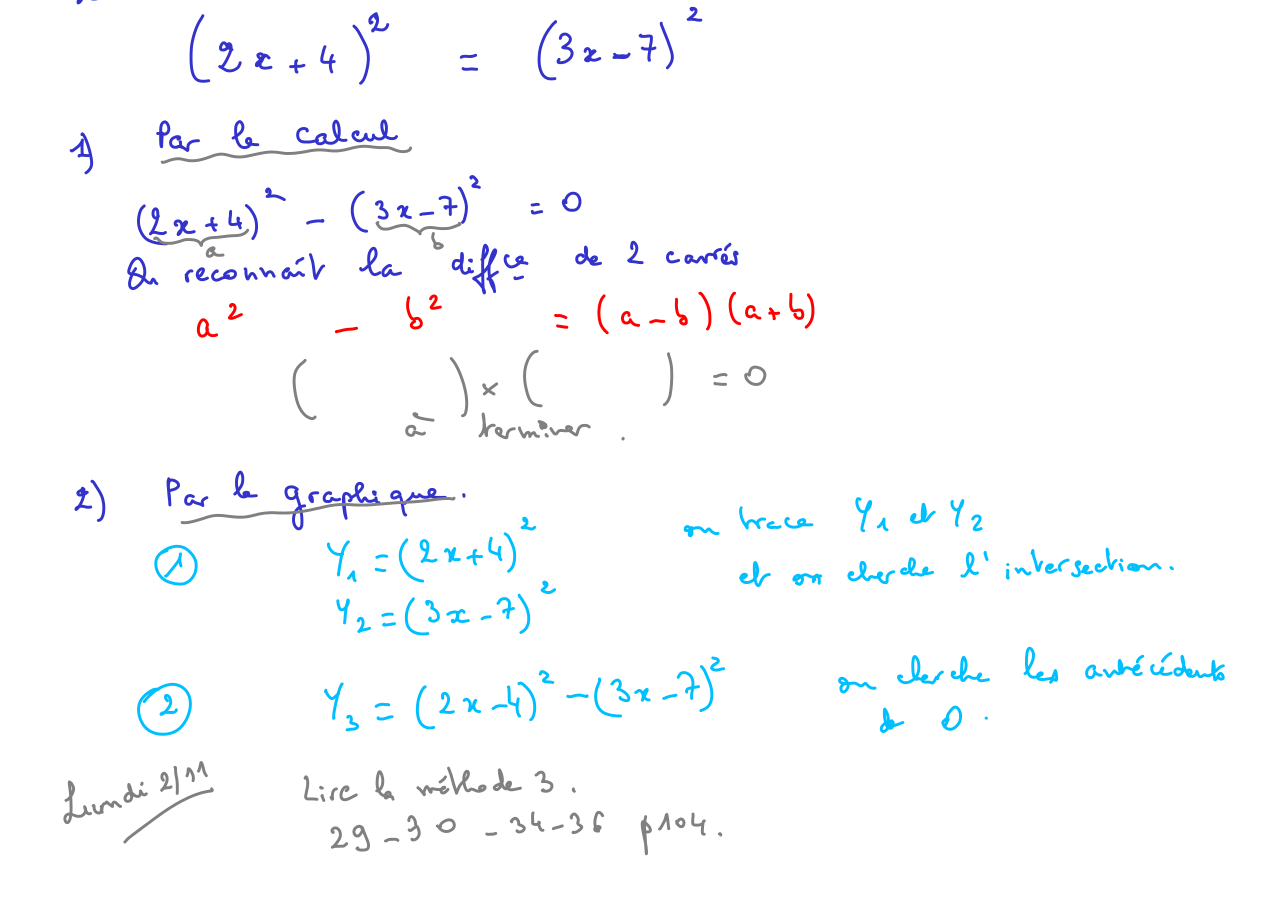 (2x+4)² = (3x-7)²
1) Par le calcul
(2x+4)² - (3x-7)² = 0
a b
On reconnaît la diffce de 2 carrés
a² - b² = (a-b)(a+b)
( ) × ( ) = 0
à terminer .
2) Par le graphique.
① Y₁ = (2x+4)² on trace Y₁ et Y₂
et on cherche l'intersection.
Y₂ = (3x-7)²
② Y₃ = (2x-4)² - (3x-7)² on cherche les antécédents
de 0.
Lundi 2/11 Lire la méthode 3.
29-30-34-36 p104.